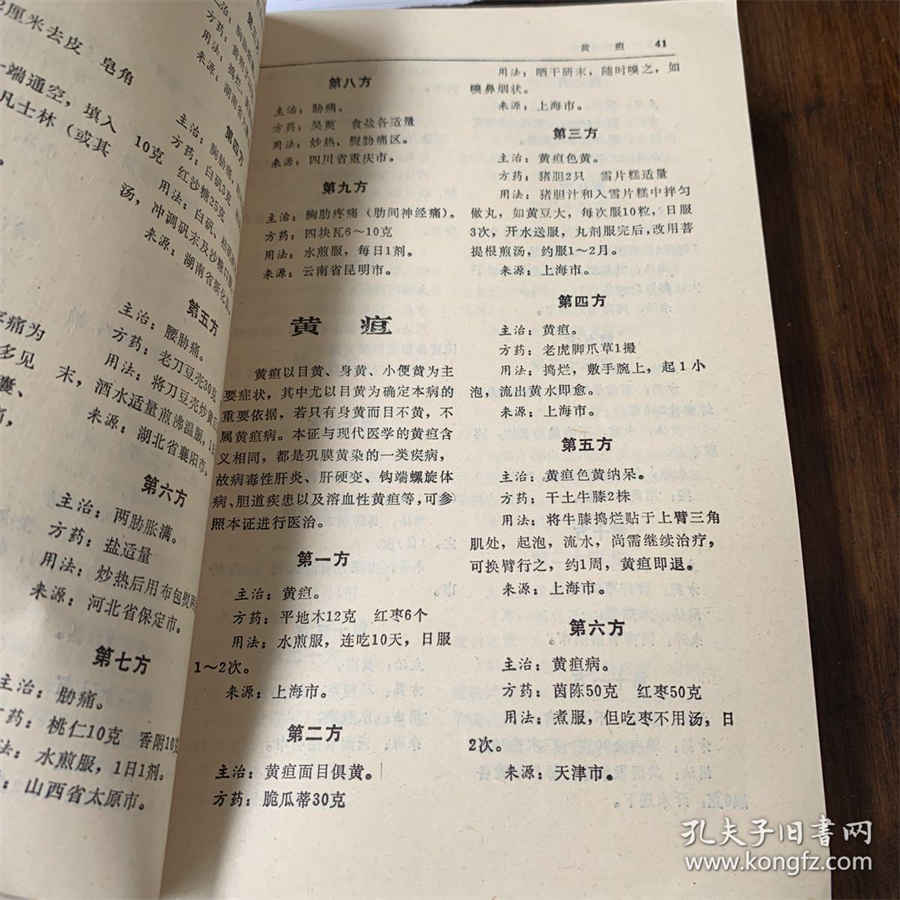 2厘米去皮 皂角
一端通空，填入
凡士林（或其
第四方
主治：胸胁
10克 方药：白矾3克
红沙糖25克
用法：白矾
汤，冲调矾末及沙糖
来源：湖南省
第五方
主治：腰胁痛。
方药：老刀豆壳30克
用法：将刀豆壳炒黄
末，酒水适量煎沸温服，1
来源：湖北省襄阳市。
疼痛为
多见
第六方
主治：两胁胀满。
方药：盐适量
用法：炒热后用布包熨
来源：河北省保定市。
第七方
主治：胁痛。
方药：桃仁10克 香附10克
用法：水煎服，1日1剂。
来源：山西省太原市。
黄 疸 41
第八方
主治：胁痛。
方药：吴萸 食盐各适量
用法：炒热，熨胁痛区。
来源：四川省重庆市。
第九方
主治：胸胁疼痛（肋间神经痛）。
方药：四块瓦6～10克
用法：水煎服，每日1剂。
来源：云南省昆明市。
黄 疸
黄疸以目黄、身黄、小便黄为主
要症状，其中尤以目黄为确定本病的
重要依据，若只有身黄而目不黄，不
属黄疸病。本证与现代医学的黄疸含
义相同，都是巩膜黄染的一类疾病，
故病毒性肝炎、肝硬变、钩端螺旋体
病、胆道疾患以及溶血性黄疸等，可参
照本证进行医治。
第一方
主治：黄疸。
方药：平地木12克 红枣6个
用法：水煎服，连吃10天，日服
1～2次。
来源：上海市。
第二方
主治：黄疸面目俱黄。
方药：脆瓜蒂30克
用法：晒干研末，随时嗅之，如
嗅鼻烟状。
来源：上海市。
第三方
主治：黄疸色黄。
方药：猪胆2只 雪片糕适量
用法：猪胆汁和入雪片糕中拌匀
做丸，如黄豆大，每次服10粒，日服
3次，开水送服，丸剂服完后，改用菩
提根煎汤，约服1～2月。
来源：上海市。
第四方
主治：黄疸。
方药：老虎脚爪草1撮
用法：捣烂，敷手腕上，起1小
泡，流出黄水即愈。
来源：上海市。
第五方
主治：黄疸色黄纳呆。
方药：干土牛膝2株
用法：将牛膝捣烂贴于上臂三角
肌处，起泡，流水，尚需继续治疗，
可换臂行之，约1周，黄疸即退。
来源：上海市。
第六方
主治：黄疸病。
方药：茵陈50克 红枣50克
用法：煮服，但吃枣不用汤，日
2次。
来源：天津市。
孔夫子旧书网
www.kongfz.com